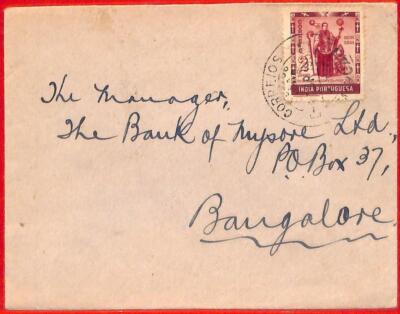 CORREIOS
INDIA PORTUGUESA
The Manager,
The Bank of Mysore Ltd.,
P.O. Box 37,
Bangalore.